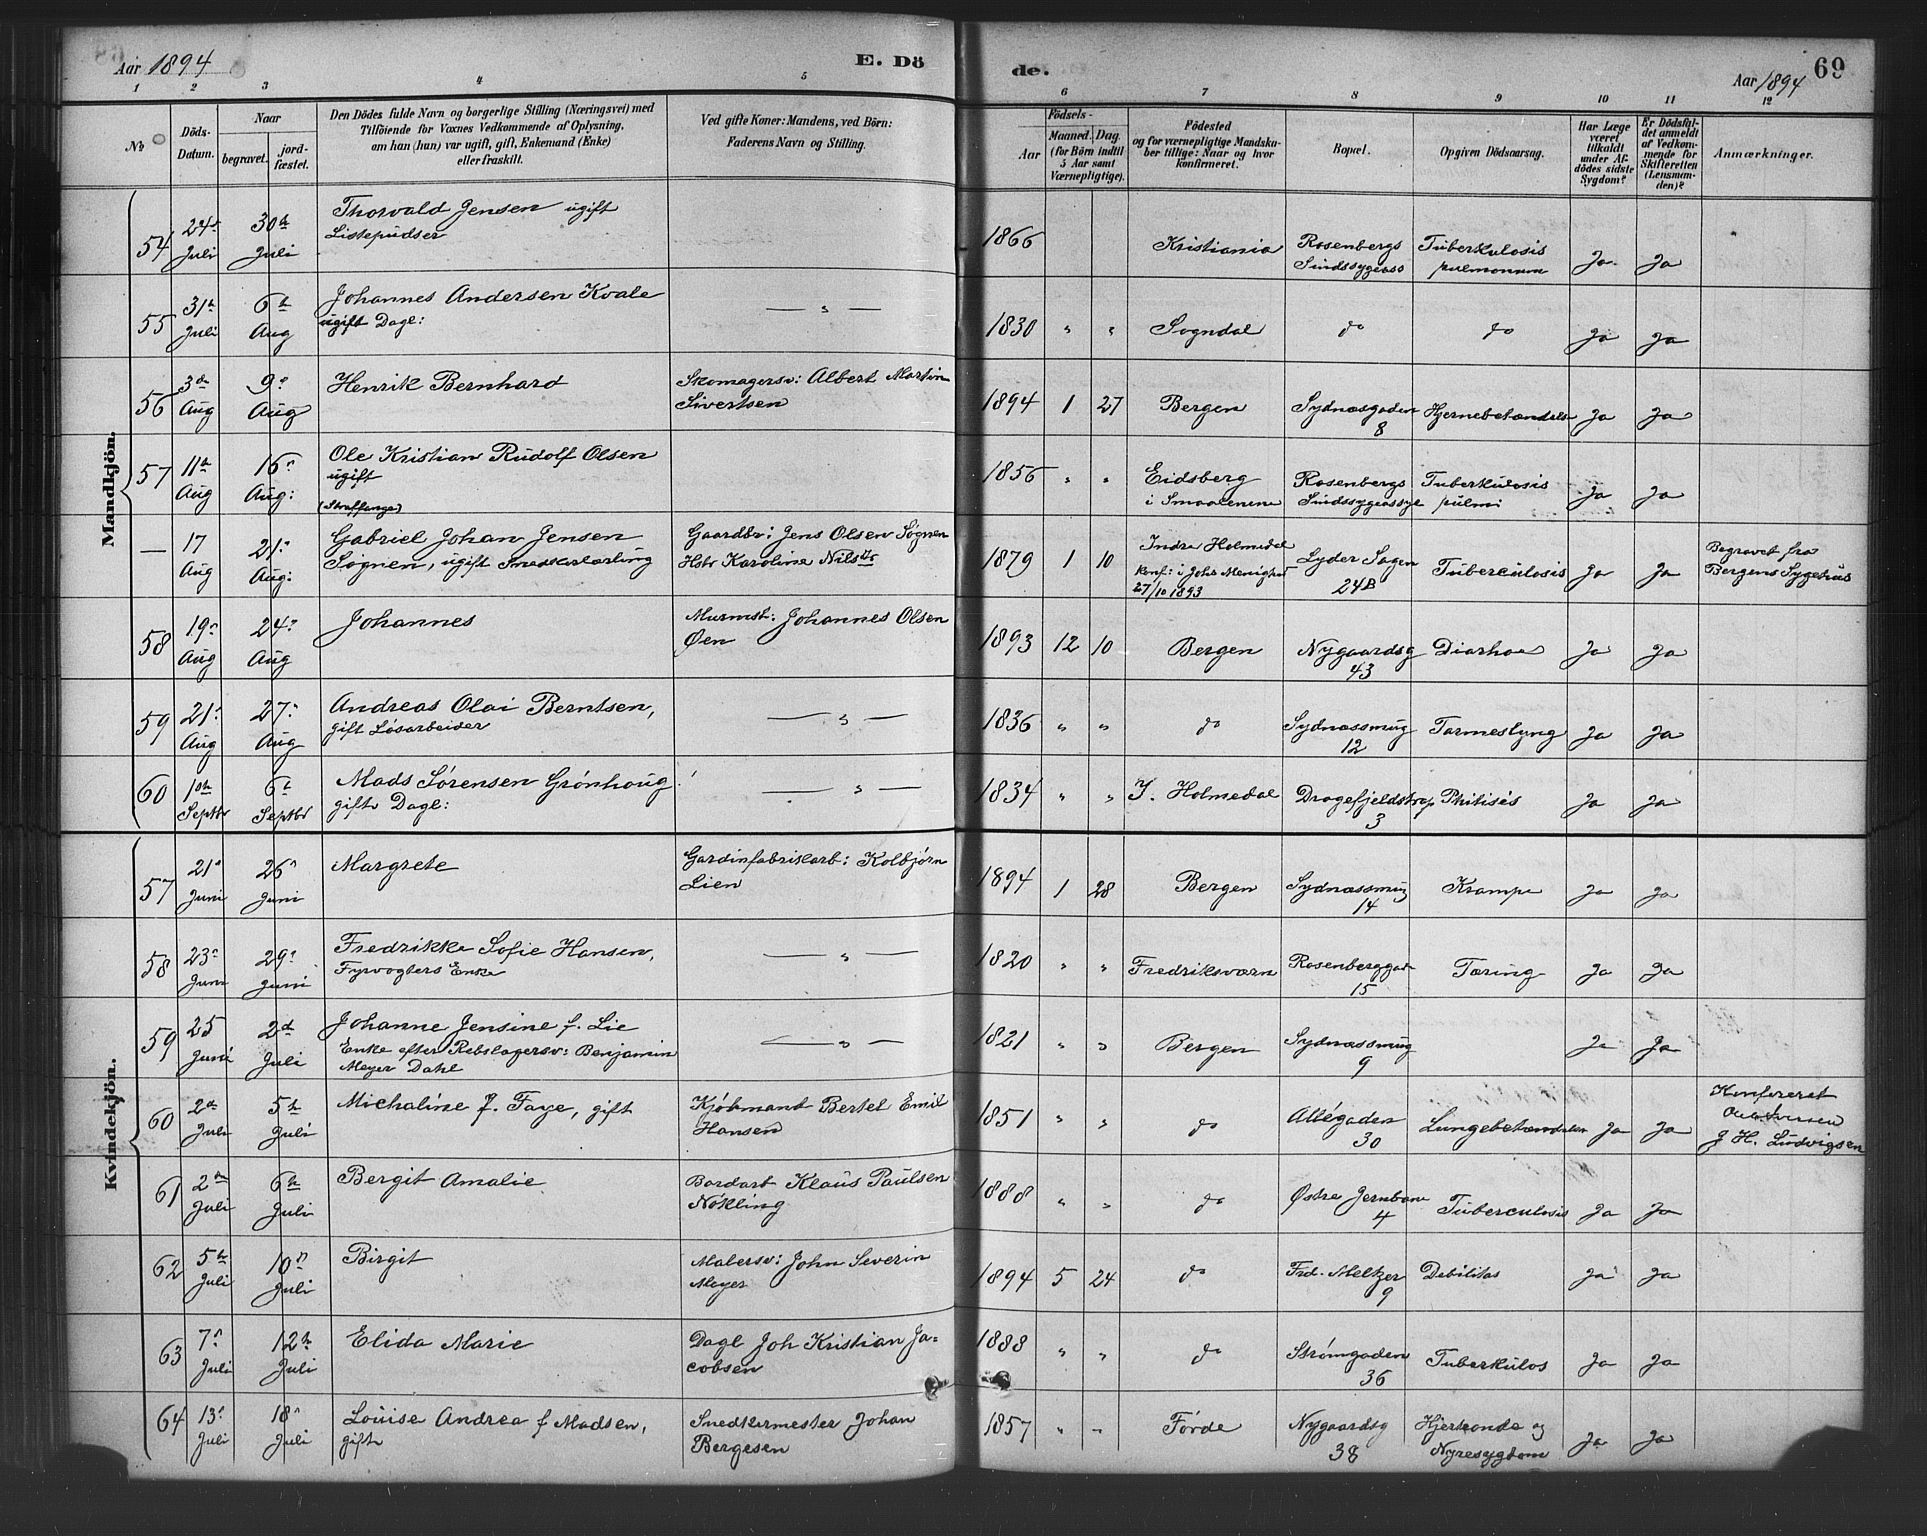 Aar 1894 E. Dö
1 2 3 4 5
№ Döds-Datum. Naar begravet. jord-fæstet. Den Dödes fulde Navn og borgerlige Stilling (Næringsvei) med Tilföiende for Voxnes Vedkommende af Oplysning, om han (hun) var ugift, gift, Enkemand (Enke) eller fraskilt. Ved gifte Koner: Mandens, ved Börn: Faderens Navn og Stilling.
de. Aar 1894 69
6 7 8 9 10 11 12
Födsels- Aar Maaned. Dag. (for Börn indtil 5 Aar samt Værnepligtige). Födested og for værnepligtige Mandskaber tillige: Naar og hvor konfirmeret. Bopæl. Opgiven Dödsaarsag. Har Læge været tilkaldt under Afdödes sidste Sygdom? Er Dödsfaldet anmeldt af Vedkommende for Skifteretten (Lensmanden)? Anmærkninger.
Mandkjön.
54 24de Juli 30te Juli Thorvald Jensen ugift Listepudser 1866 Kristiania Rosenbergs Sindssygeass Tuberkulosis pulmonum Ja Ja
55 31te Juli 6te Aug Johannes Andersen Kvale ugift Dagl: — " — 1830 " " Sogndal do do Ja Ja
56 3die Aug 9de Aug Henrik Bernhard Skomagersv: Albert Martin Sivertsen 1894 1 27 Bergen Sydnæsgaden 8 Hjernebetændelse Ja Ja
57 11te Aug 16de Aug: Ole Kristian Rudolf Olsen ugift (Straffange) 1856 " " Eidsberg i Smaalenene Rosenbergs Sindssygeassyl Tuberkulosis pulmi Ja Ja
— 17 Aug 21de Aug: Gabriel Johan Jensen Søgnen, ugift Smedselærling Gaardbr: Jens Olsen Søgnen Hstr Karoline Nilsdtr 1879 1 10 Indre Holmedal konf: i Johs Menighed 27/10 1893 Lyder Sagen 24B Tuberculosis Ja Ja Begravet fra Bergens Sygehus
58 19de Aug 24de Aug Johannes Murmst: Johannes Olsen Øen 1893 12 10 Bergen Nygaardsg 43 Diarhoe Ja Ja
59 21de Aug 27de Aug Andreas Olai Berntsen, gift Løsarbeider — " — 1836 " " do Sydnæssmug 12 Tarmeslyng Ja Ja
60 1ste Septbr 6te Septbr Mads Sørensen Grønhoug gift Dagl: — " — 1834 " " Y. Holmedal Dragefjeldstrap 3 Phitisis Ja Ja
Kvindekjön.
57 21de Juni 26de Juni Margrete Gardinfabrikarb: Kolbjørn Lien 1894 1 28 Bergen Sydnæssmug 14 Krampe Ja Ja
58 23de Juni 29de Juni Fredrikke Sofie Hansen, Fyrvogters Enke — " — 1820 " " Fredriksværn Rosenberggad 15 Tæring Ja Ja
59 25 Juni 2d Juli Johanne Jensine f. Lie Enke efter Rebslagersv: Benjamin Meyer Dahl — " — 1821 " " Bergen Sydnæssmug 9 Ja Ja
60 2d Juli 5te Juli Michaline f. Faye, gift Kjøbmand Bertel Emil Hansen 1851 " " do Allégaden 30 Lungebetændelse Ja Ja Konfereret J H. Ludvigsen
61 2den Juli 6te Juli Bergit Amalie Bordarb Klaus Paulsen Nøkling 1888 " " do Østre Jernbane 4 Tuberculosis Ja Ja
62 5te Juli 10de Juli Birgit Malersv: John Severin Meyer 1894 5 24 do Frd. Meltzer 9 Debilitas Ja Ja
63 7de Juli 12te Juli Elida Marie Dagl Joh Kristian Jacobsen 1888 " " do Strømgaden 36 Tuberkulos Ja Ja
64 13de Juli 18de Juli Louise Andrea f Madsen, gift Snedkermester Johan Bergesen 1857 " " Førde Nygaardsg 38 Hjerteonde og Nyresygdom Ja Ja